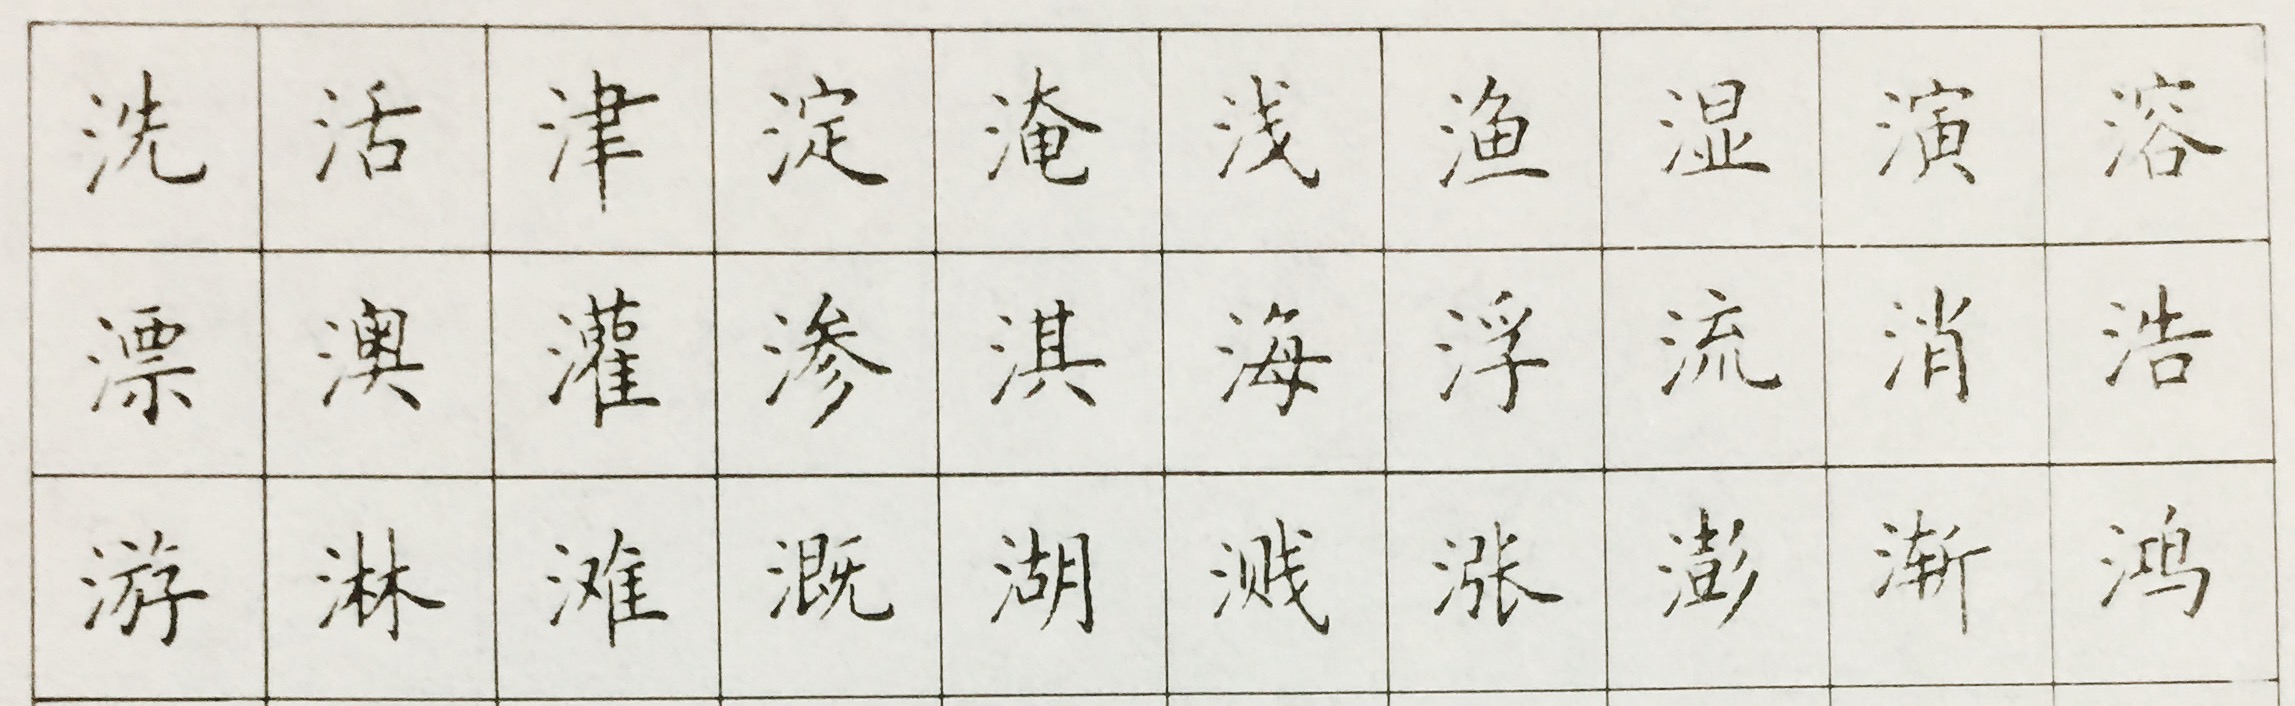 洗活津淀淹浅渔湿演溶
漂澳灌渗淇海浮流消浩
游淋滩溉湖溅涨澎渐鸿